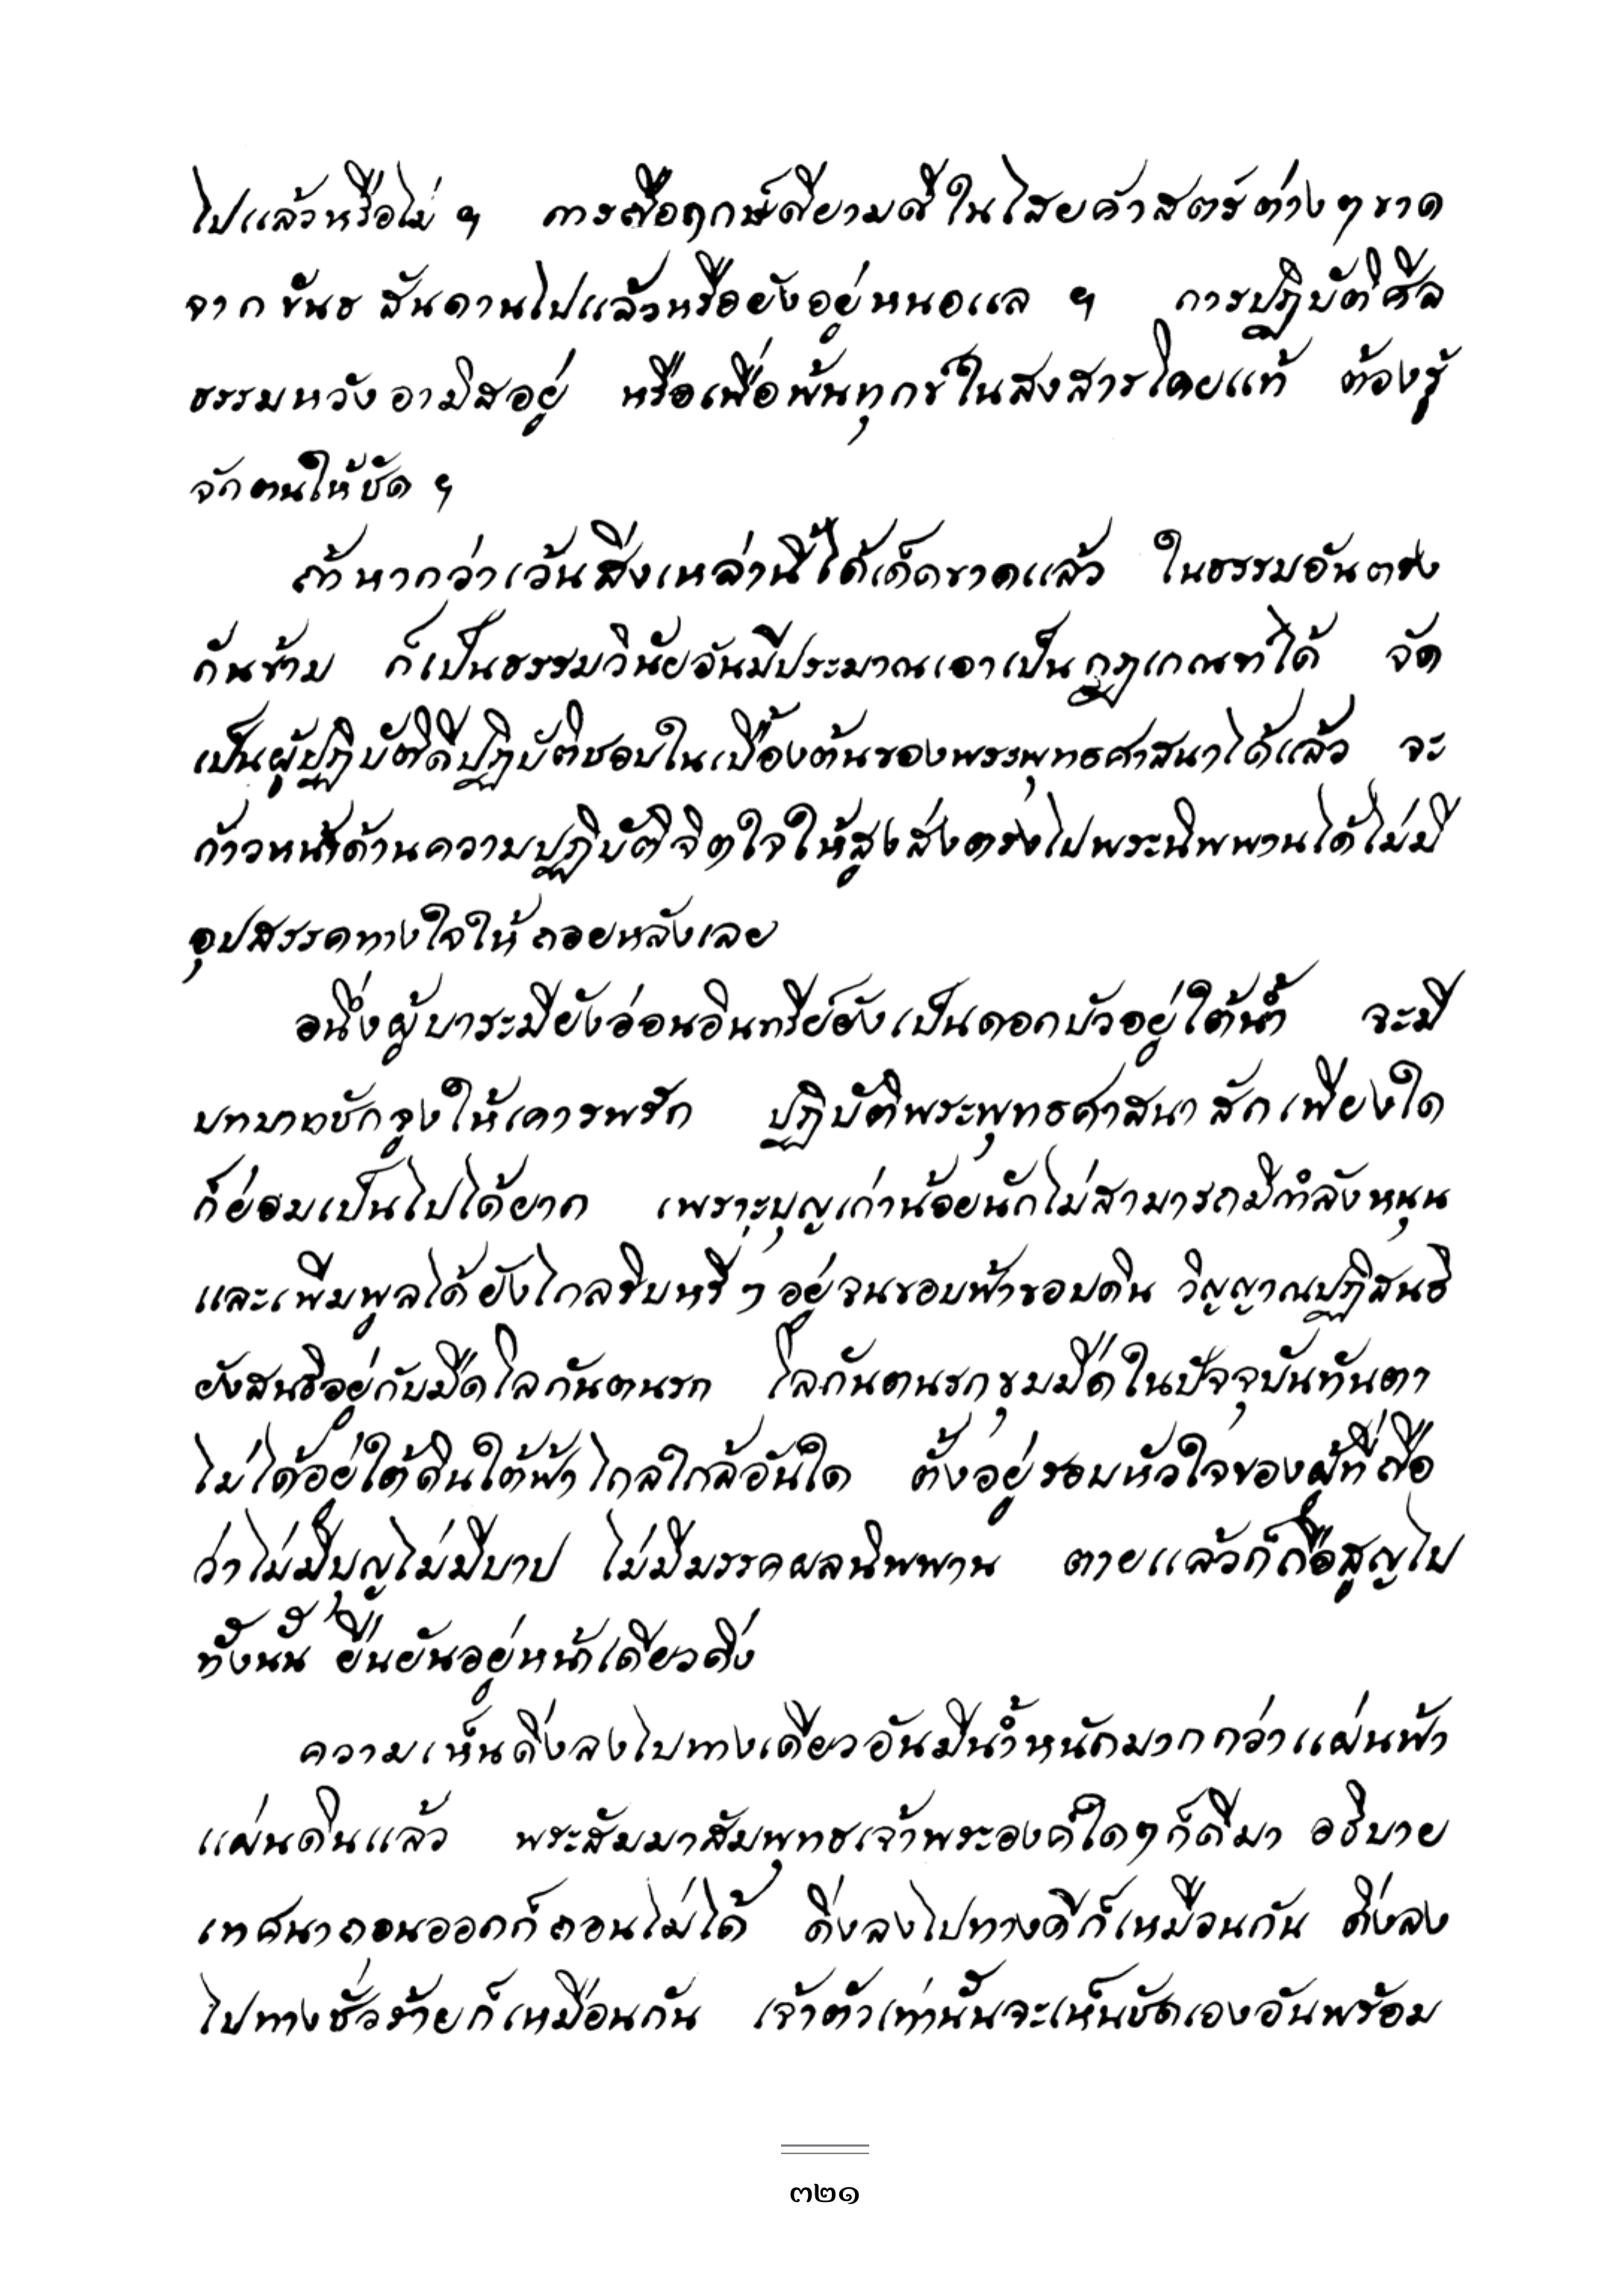 ไปแล้วหรือไม่ ฯ การถือฤกษ์ดียามดีในไสยค๎าสตร์ต่างๆขาด
จากขันธสันดานไปแล้วหรือยังอยู่หนอแล ฯ การปฏิบัติศีล
ธรรมหวังอามิสอยู่ หรือเพื่อพ้นทุกข์ในสงสารโดยแท้ ต้องรู้
จักตนให้ชัด ฯ
ถ้าหากว่าเว้นสิ่งเหล่านี้ได้เด็ดขาดแล้ว ในธรรมอันตรง
กันข้าม ก็เป็นธรรมวินัยอันมีประมาณเอาเป็นกฏเกณฑ์ได้ จัด
เป็นผู้ปฏิบัติดีปฏิบัติชอบในเบื้องต้นของพระพุทธศาสนาได้แล้ว จะ
ก้าวหน้าด้านความปฏิบัติจิตใจให้สูงส่งตรงไปพระนิพพานได้ไม่มี
อุปสรรคทางใจให้ถอยหลังเลย
อนึ่งผู้บาระมียังอ่อนอินทรีย์ยังเป็นดอกบัวอยู่ใต้น้ำ จะมี
บทบาทชักจูงให้เคารพรัก ปฏิบัติพระพุทธศาสนาสักเพียงใด
ก็ย่อมเป็นไปได้ยาก เพราะบุญเก่าน้อยนักไม่สามารถมีกำลังหนุน
และเพิ่มพูลได้ยังไกลริบหรี่ๆอยู่จนขอบฟ้าขอบดิน วิญญาณปฏิสนธิ
ยังสนธิอยู่กับมืดโลกันตนรก โลกันตนรกขุมมืดในปัจจุบันทันตา
ไม่ได้อยู่ใต้ดินใต้ฟ้าไกลใกล้อันใด ตั้งอยู่รอบหัวใจของผู้ที่ถือ
ว่าไม่มีบุญไม่มีบาป ไม่มีมรรคผลนิพพาน ตายแล้วก็ถือสูญไป
ทั้งนั้น ยืนยันอยู่หน้าเดียวดิ่ง
ความเห็นดิ่งลงไปทางเดียวอันมีน้ำหนักมากกว่าแผ่นฟ้า
แผ่นดินแล้ว พระสัมมาสัมพุทธเจ้าพระองค์ใดๆก็ดีมา อธิบาย
เทศนาถอนออกก็ถอนไม่ได้ ดิ่งลงไปทางดีก็เหมือนกัน ดิ่งลง
ไปทางชั่วร้ายก็เหมือนกัน เจ้าตัวเท่านั้นจะเห็นชัดเองอันพร้อม
๓๒๑